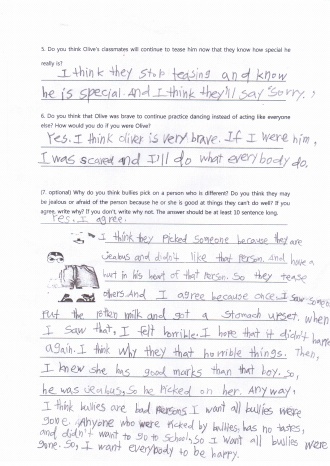 5. Do you think Olive's classmates will continue to tease him now that they know how special he
really is?
I think they stop teasing and know
he is special. And I think they'll say "Sorry."
6. Do you think that Olive was brave to continue practice dancing instead of acting like everyone
else? How would you do if you were Olive?
Yes. I think oliver is very brave. If I were him,
I was scared and I'll do what everybody do.
(7. optional) Why do you think bullies pick on a person who is different? Do you think they may
be jealous or afraid of the person because he or she is good at things they can't do well? If you
agree, write why? If you don't, write why not. The answer should be at least 10 sentence long.
Yes. I agree.
I think they picked someone because they are
Jealous and didn't like that person. And have a
hurt in his heart of that person. So they tease
others. And I agree because once I saw someone
Put the rotten milk and got a stomach upset, when
I saw that, I felt horrible. I hope that it didn't happen
again. I think why they that horrible things. Then,
I knew she has good marks than that boy. So,
he was Jealous, so he picked on her. Anyway,
I think bullies are bad persons I want all bullies were
gone. Anyone who were picked by bullies has no tates,
and didn't want to go to school, So I want all bullies were
gone. So, I want everybody to be happy.